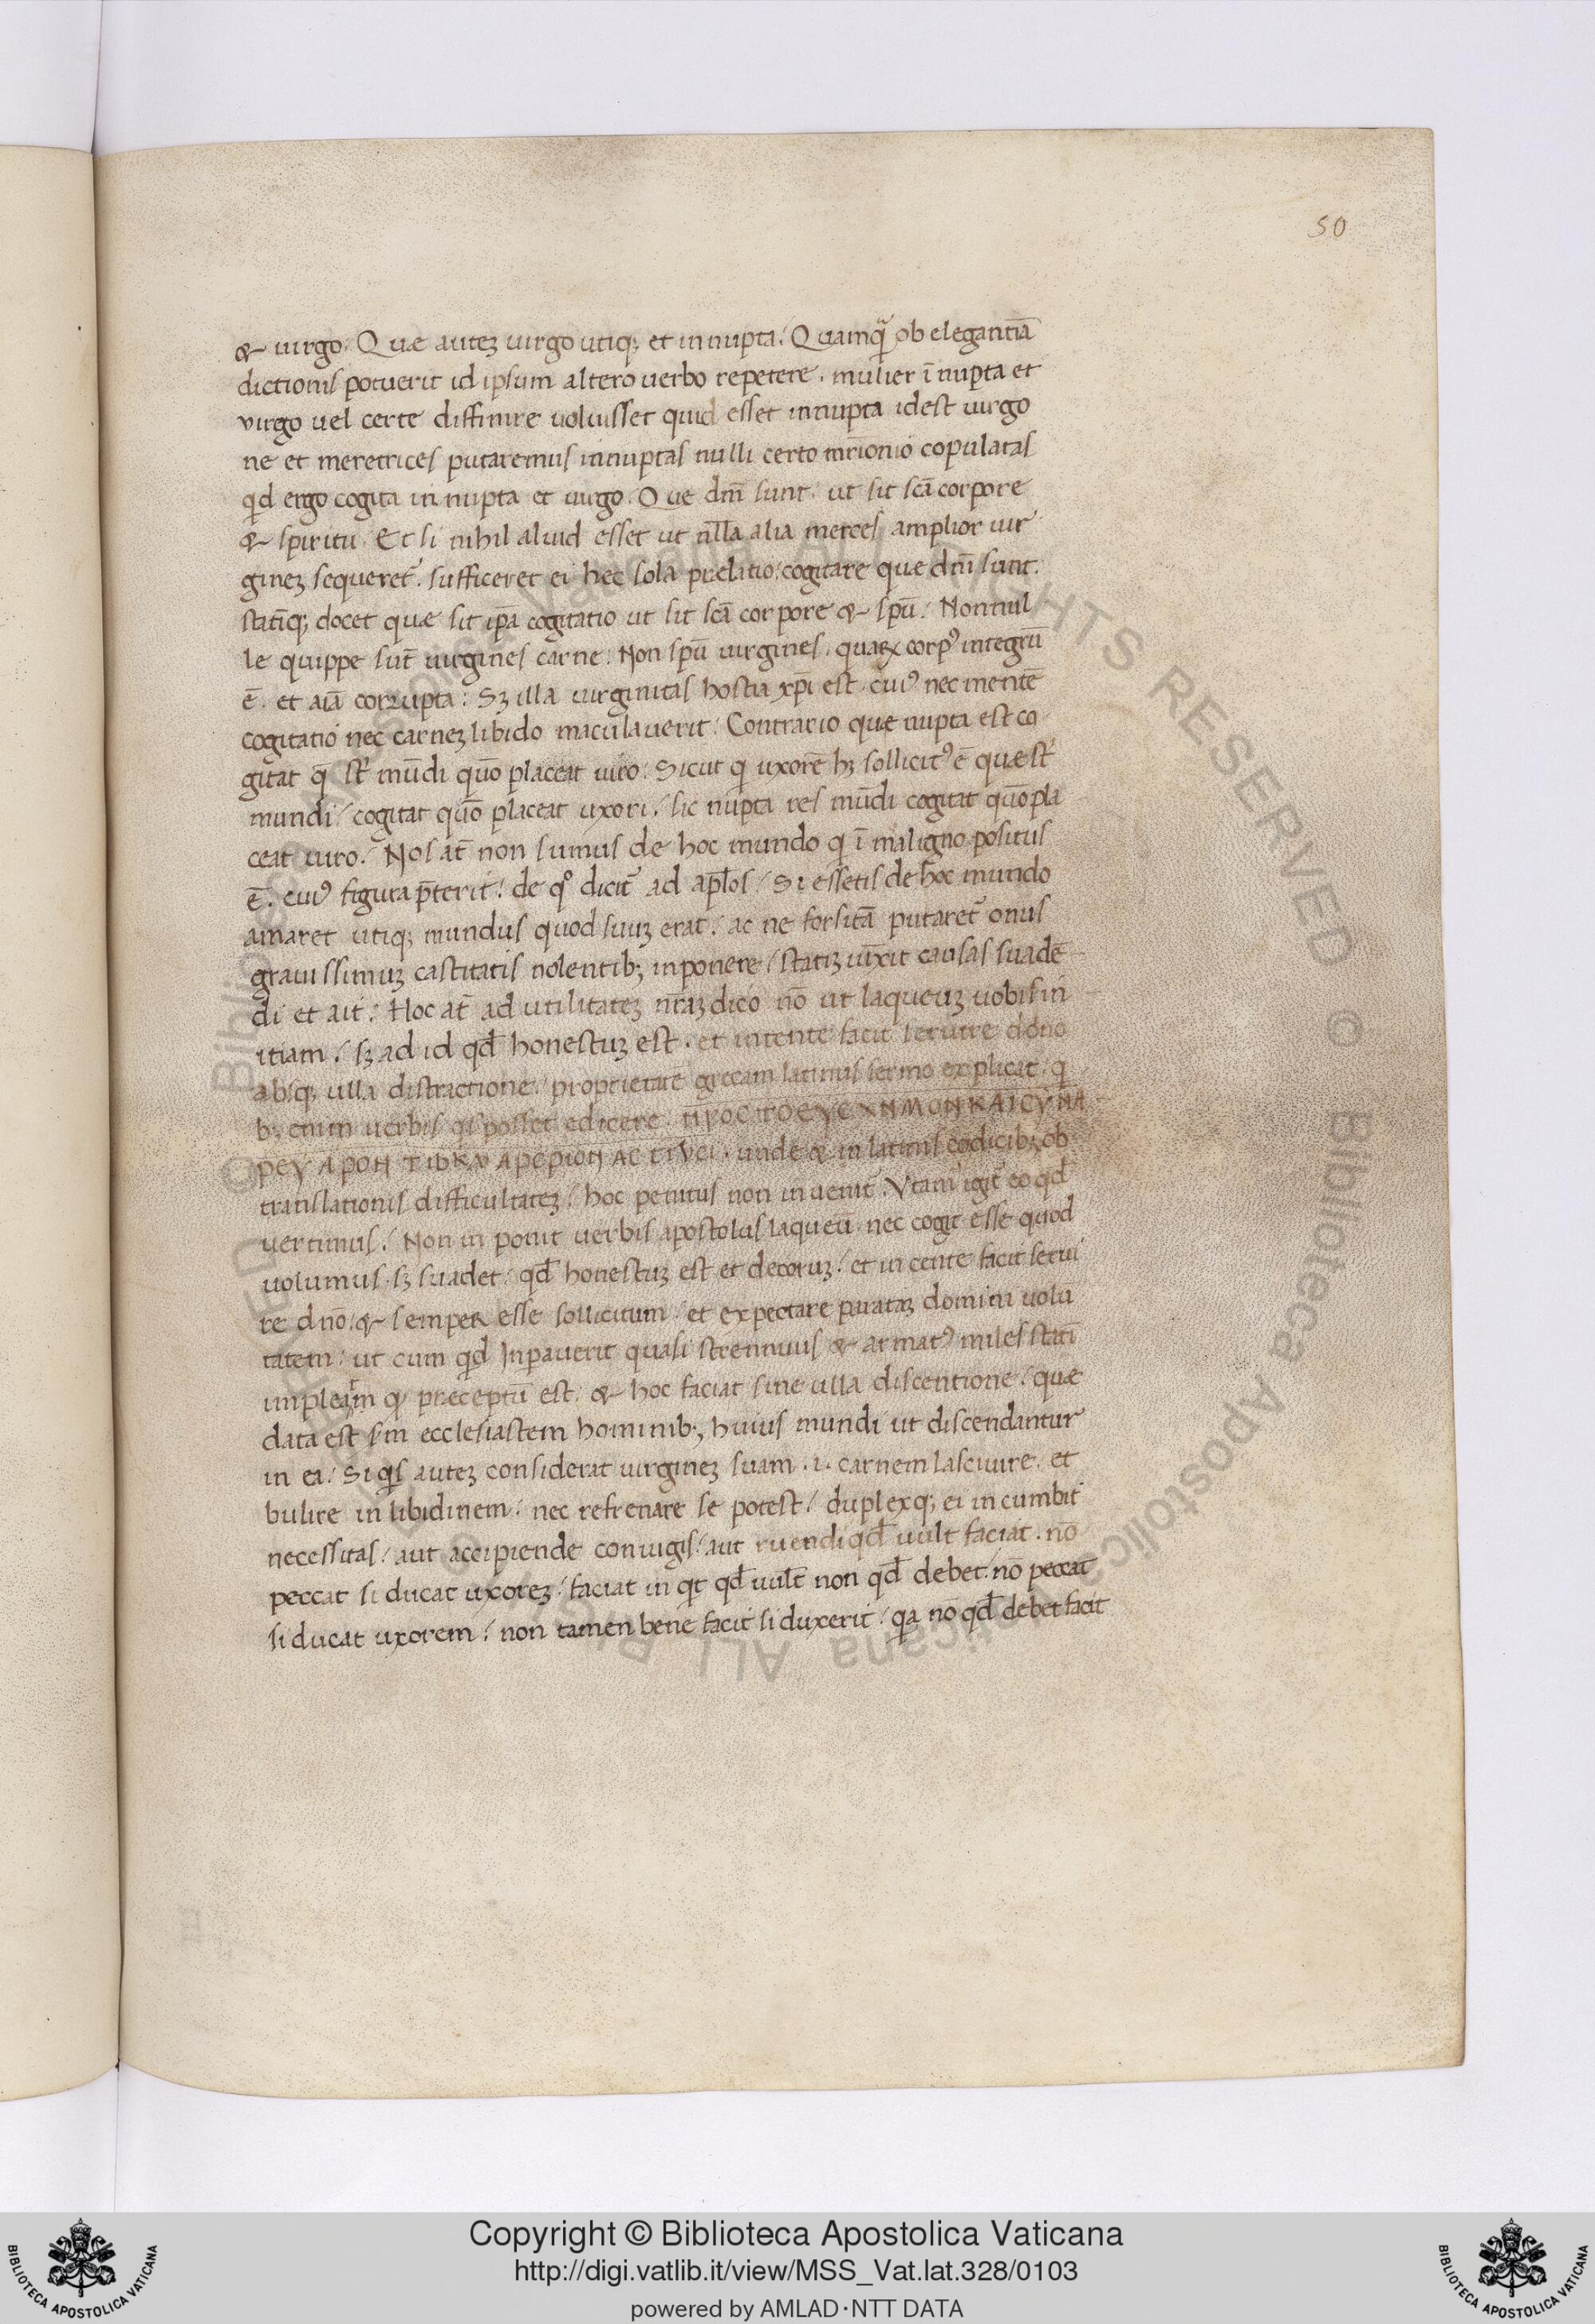 50
& uirgo. Quæ autez uirgo utiq; et in nupta. Quamqͣ̄ ob elegantiā
dictionis potuerit id ipsum altero uerbo repetere. mulier ī nupta et
virgo uel certe diffinire uoluisset quid esset innupta idest uirgo
ne et meretrices putaremus innuptas nulli certo mr̄ionio copulatas
qd ergo cogita in nupta et uirgo. Que dn̄i sunt. ut sit scā corpore
& spiritu. Et si nihil aliud esset ut nlla alia merces amplior uir
ginez sequeret̄. sufficeret ei hec sola prelatio. cogitare que dn̄i sunt.
statīq; docet quæ sit ip̄a cogitatio ut sit scā corpore & sp̄u. Nonnul
le quippe sūt uirgines carne. Non sp̄u uirgines. quaꝝ corpꝰ integrū
ē. et aīa corrupta. Sꝫ illa uirginitas hostia xp̄i est. cuiꝰ nec mentē
cogitatio nec carnez libido maculauerit. Contrario quæ nupta est co
gitat q̄ st̄ mūdi quō placeat uiro. Sicut q uxorē hꝫ sollicitꝰ ē quæ st̄
mundi / cogitat quō placeat uxori. sic nupta res mūdi cogitat quō pla
ceat uiro. Nos at̄ non sumus de hoc mundo q ī maligno positus
ē. cuiꝰ figura p̄terit. de qͦ dicit̄ ad ap̄los / Si essetis de hoc mundo
amaret utiq; mundus quod suuz erat. ac ne forsitā putaret̄ onus
grauissimuz castitatis nolentib; inponere / statiz uīxit causas suadē
di et ait. Hoc at̄ ad utilitatez nr̄az dico nō ut laqueuz uobis in
itiam. sꝫ ad id qd̄ honestuz est. et intente facit seruire dōno
absq; ulla distractione. proprietatē grecam latinus sermo explicat. q
b; enim uerbis qs posset edicere ΠΡΟC ΤΟ ΕΥCΧΗΜΟΝ ΚΑΙ CΥΝΑ
translationis difficultatez. hoc penitus non inuenit. Vtam igit̄ eo qd̄
uertimus. Non in ponit uerbis apostolus laqueū nec cogit esse quod
uolumus. sꝫ suadet. qd̄ honestuz est et decoruz. et in cente facit serui
re dnō. & semper esse sollicitum. et expectare parataz domini uolū
tatem. ut cum qd Inpauerit quasi strennuus & armatꝰ miles statī
impleat̄m q præceptū est. & hoc faciat sine ulla discentione. quæ
data est sm̄ ecclesiastem hominib; huius mundi ut discendantur
in ea. Si qs autez considerat uirginez suam .i. carnem lasciuire. et
bulire in libidinem. nec refrenare se potest. duplexq; ei in cumbit
necessitas / aut accipiende conuigis / aut ruendi qd̄ uult faciat. nō
peccat si ducat uxorez. faciat in qt qd̄ uult non qd̄ debet. nō peccat
si ducat uxorem. non tamen bene facit si duxerit. qa nō qd̄ debet facit
© Biblioteca Apostolica Vaticana ALL RIGHTS RESERVED
Copyright © Biblioteca Apostolica Vaticana
http://digi.vatlib.it/view/MSS_Vat.lat.328/0103
powered by AMLAD·NTT DATA
BIBLIOTECA APOSTOLICA VATICANA
BIBLIOTECA APOSTOLICA VATICANA